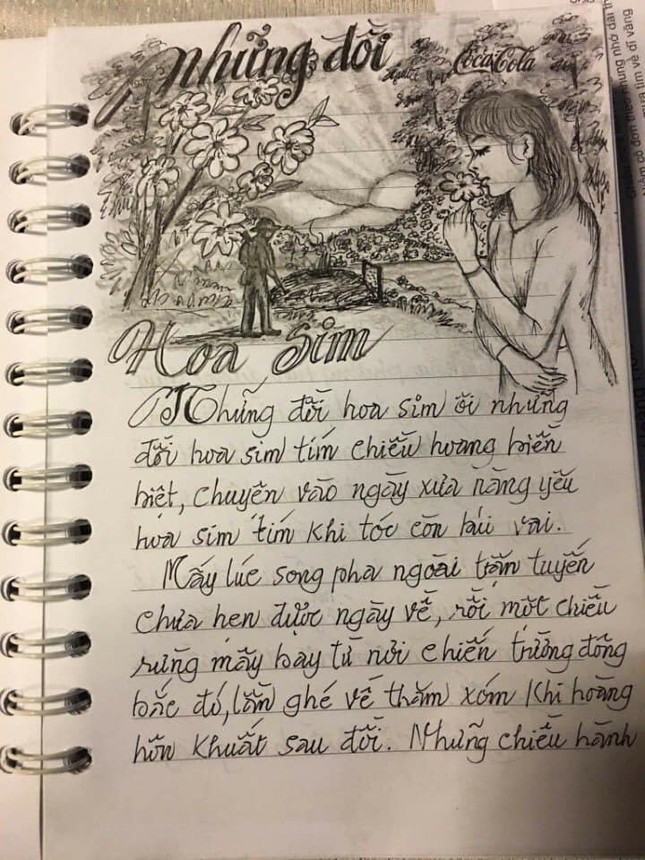 những đồi
Coca-Cola
Hoa Sim
Những đồi hoa sim ôi những
đồi hoa sim tím chiều hoang biền
biệt, chuyện vào ngày xưa nàng yêu
hoa sim tím khi tóc còn búi vai.
Mấy lúc song pha ngoài trận tuyến
chưa hẹn được ngày về, rồi một chiều
rừng mây bay từ nơi chiến trường đông
bắc đó, lần ghé về thăm xóm khi hoàng
hôn khuất sau đồi. Những chiều hành